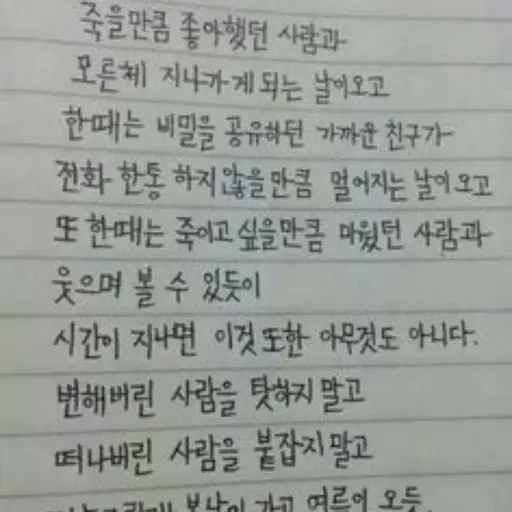 죽을만큼 좋아했던 사람과
모른체 지나가게 되는 날이오고
한때는 비밀을 공유하던 가까운 친구가
전화 한통 하지않을만큼 멀어지는 날이오고
또 한때는 죽이고싶을만큼 미웠던 사람과
웃으며 볼 수 있듯이
시간이 지나면 이것또한 아무것도 아니다.
변해버린 사람을 탓하지 말고
떠나버린 사람을 붙잡지말고
봄날이 가고 여름이 오듯.